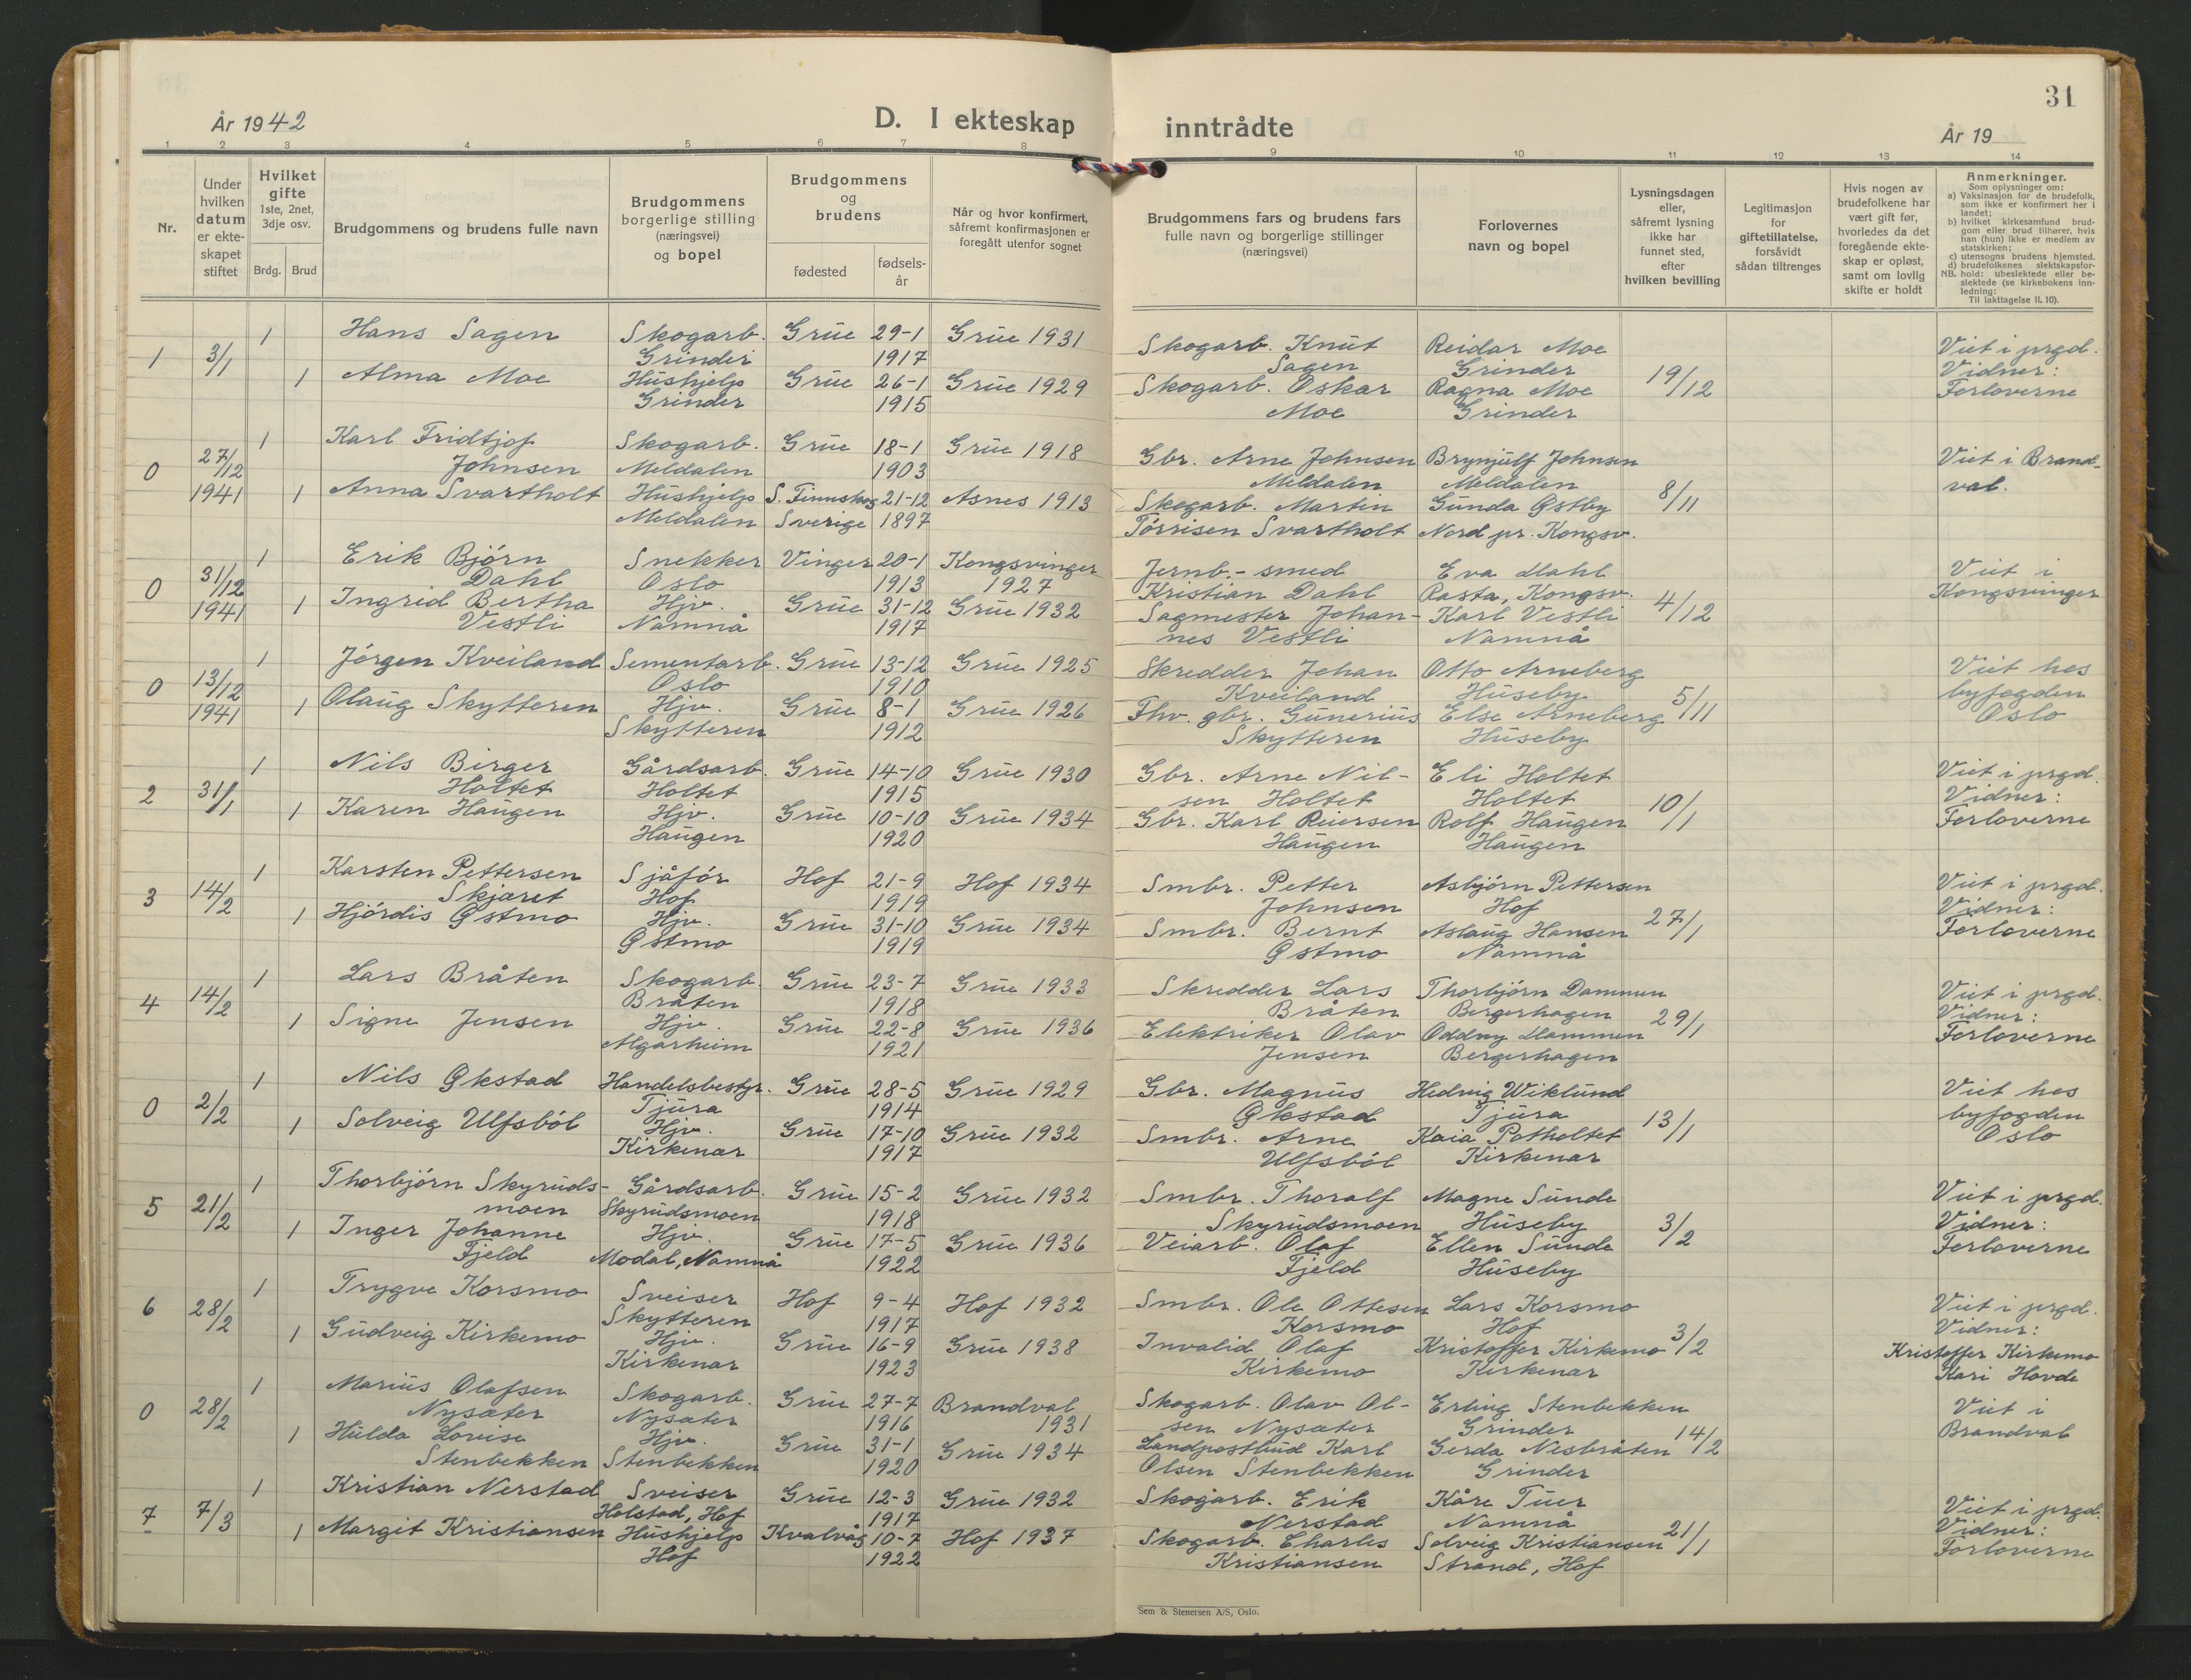 31
År 1942
D. I ekteskap inntrådte
År 19
1 2 3 4 5 6 7 8 9 10 11 12 13 14
Nr.
Under hvilken datum er ekteskapet stiftet
Hvilket gifte 1ste, 2net, 3dje osv.
Brdg. Brud
Brudgommens og brudens fulle navn
Brudgommens borgerlige stilling (næringsvei) og bopel
Brudgommens og brudens
fødested
fødsels-år
Når og hvor konfirmert, såfremt konfirmasjonen er foregått utenfor sognet
Brudgommens fars og brudens fars fulle navn og borgerlige stillinger (næringsvei)
Forlovernes navn og bopel
Lysningsdagen eller, såfremt lysning ikke har funnet sted, efter hvilken bevilling
Legitimasjon for giftetillatelse, forsåvidt sådan tiltrenges
Hvis nogen av brudefolkene har vært gift før, hvorledes da det foregående ekteskap er opløst, samt om lovlig skifte er holdt
Anmerkninger.
Som oplysninger om:
a) Vaksinasjon for de brudefolk, som ikke er konfirmert her i landet;
b) hvilket kirkesamfund brudgom eller brud tilhører, hvis han (hun) ikke er medlem av statskirken;
c) utensogns brudens hjemsted.
d) brudefolkenes slektskapsforhold: ubeslektede eller beslektede (se kirkebokens innledning:
NB.
Til iakttagelse II. 10).
1 3/1 1 Hans Sagen Skogarb. Grinder Grue 29-1 1917 Grue 1931 Skogarb. Knut Sagen Reidar Moe Grinder 19/12 Viet i prgd. Vidner: Forloverne
1 Alma Moe Hushjelp Grinder Grue 26-1 1915 Grue 1929 Skogarb. Oskar Moe Ragna Moe Grinder
0 27/12 1941 1 Karl Fridtjof Johnsen Skogarb. Meldalen Grue 18-1 1903 Grue 1918 Gbr. Arne Johnsen Meldalen Brynjulf Johnsen Meldalen 8/11 Viet i Brandval.
1 Anna Svartholt Hushjelp Meldalen S. Finnskog Sverige 21-12 1897 Åsnes 1913 Skogarb. Martin Tørrisen Svartholt Gunda Østby Nord pr. Kongsv.
0 31/12 1941 1 Erik Bjørn Dahl Snekker Oslo Vinger 20-1 1913 Kongsvinger 1927 Jernb.-smed Kristian Dahl Eva Dahl Rasta, Kongsv. 4/12 Viet i Kongsvinger
1 Ingrid Bertha Vestli Hjv. Namnå Grue 31-12 1917 Grue 1932 Sagmester Johannes Vestli Karl Vestli Namnå
0 13/12 1941 1 Jørgen Kveiland Sementarb. Oslo Grue 13-12 1910 Grue 1925 Skredder Johan Kveiland Otto Arneberg Huseby 5/11 Viet hos byfogden Oslo
1 Olaug Skytteren Hjv. Skytteren Grue 8-1 1912 Grue 1926 Fhv. gbr. Gunerius Skytteren Else Arneberg Huseby
2 31/1 1 Nils Birger Holtet Gårdsarb. Holtet Grue 14-10 1915 Grue 1930 Gbr. Arne Nilsen Holtet Eli Holtet Holtet 10/1 Viet i prgd. Vidner: Forloverne
1 Karen Haugen Hjv. Haugen Grue 10-10 1920 Grue 1934 Gbr. Karl Reiersen Haugen Rolf Haugen Haugen
3 14/2 1 Karsten Pettersen Skjæret Sjåfør Hof Hof 21-9 1919 Hof 1934 Smbr. Petter Johnsen Asbjørn Pettersen Hof 27/1 Viet i prgd. Vidner: Forloverne
1 Hjørdis Østmo Hjv. Østmo Grue 31-10 1919 Grue 1934 Smbr. Bernt Østmo Aslaug Hansen Namnå
4 14/2 1 Lars Bråten Skogarb. Bråten Grue 23-7 1918 Grue 1933 Skredder Lars Bråten Thorbjørn Dammen Bergerhagen 29/1 Viet i prgd. Vidner: Forloverne
1 Signe Jensen Hjv. Algarheim Grue 22-8 1921 Grue 1936 Elektriker Olav Jensen Oddny Dammen Bergerhagen
0 2/2 1 Nils Økstad Handelsbestyr. Tjura Grue 28-5 1914 Grue 1929 Gbr. Magnus Økstad Hedvig Wiklund Tjura 13/1 Viet hos byfogden Oslo
1 Solveig Ulfsbøl Hjv. Kirkenær Grue 17-10 1917 Grue 1932 Smbr. Arne Ulfsbøl Kaia Potholtet Kirkenær
5 21/2 1 Thorbjørn Skyrudsmoen Gårdsarb. Skyrudsmoen Grue 15-2 1918 Grue 1932 Smbr. Thoralf Skyrudsmoen Magne Sunde Huseby 3/2 Viet i prgd. Vidner: Forloverne
1 Inger Johanne Fjeld Hjv. Modal, Namnå Grue 17-5 1922 Grue 1936 Veiarb. Olaf Fjeld Ellen Sunde Huseby
6 28/2 1 Trygve Korsmo Sveiser Skytteren Hof 9-4 1917 Hof 1932 Smbr. Ole Ottesen Korsmo Lars Korsmo Hof 3/2 Viet i prgd. Vidner: Kristoffer Kirkemo Kari Hovde
1 Gudveig Kirkemo Hjv. Kirkenær Grue 16-9 1923 Grue 1938 Invalid Olaf Kirkemo Kristoffer Kirkemo Kirkenær
0 28/2 1 Marius Olafsen Nysæter Skogarb. Nysæter Grue 27-7 1916 Brandval 1931 Skogarb. Olav Olsen Nysæter Erling Stenbekken Grinder 14/2 Viet i Brandval
1 Hulda Lovise Stenbekken Hjv. Stenbekken Grue 31-1 1920 Grue 1934 Landpostbud Karl Olsen Stenbekken Gerda Nesbråten Grinder
7 7/3 1 Kristian Nerstad Sveiser Holstad, Hof Grue 12-3 1917 Grue 1932 Skogarb. Erik Nerstad Kåre Tuer Namnå 21/1 Viet i prgd. Vidner: Forloverne
1 Margit Kristiansen Hushjelp Hof Kvalvåg 10-7 1922 Hof 1937 Skogarb. Charles Kristiansen Solveig Kristiansen Strand, Hof
Sem & Stenersen A/S, Oslo.